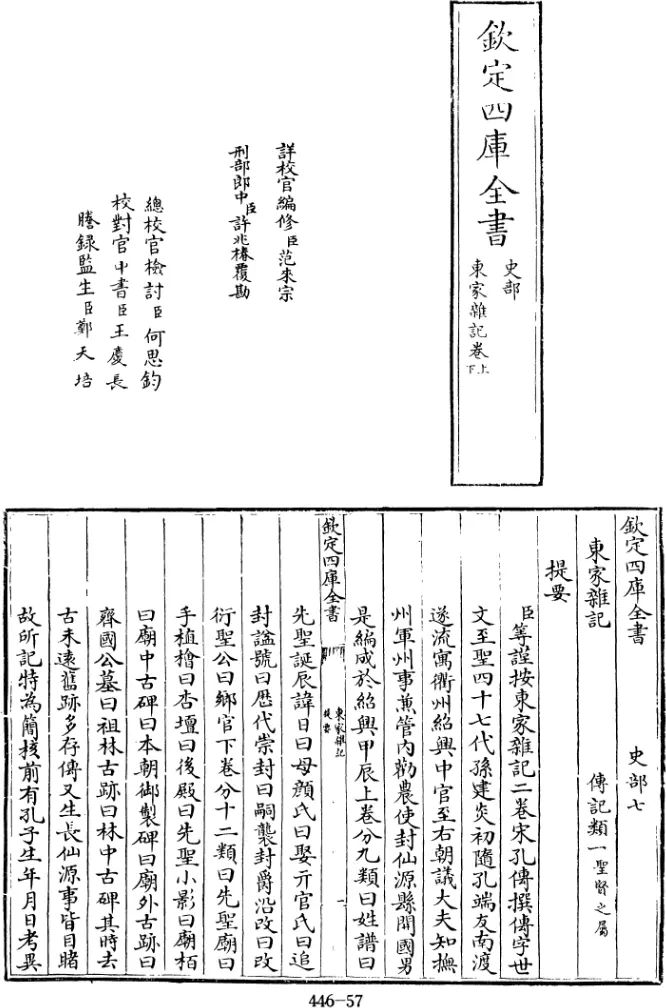 欽定四庫全書
史部
東家雜記卷上下
詳校官編修臣范來宗
刑部郎中臣許兆椿覆勘
總校官檢討臣何思鈞
校對官中書臣王慶長
謄録監生臣鄭天培
欽定四庫全書 史部七
東家雜記 傳記類一聖賢之屬
提要
臣等謹按東家雜記二卷宋孔傳撰傳字世
文至聖四十七代孫建炎初隨孔端友南渡
遂流寓衢州紹興中官至右朝議大夫知撫
州軍州事兼管內勸農使封仙源縣開國男
是編成於紹興甲辰上卷分九類曰姓譜曰
欽定四庫全書 東家雜記 提要 一
先聖誕辰諱日曰母顔氏曰娶亓官氏曰追
封諡號曰歴代崇封曰嗣襲封爵沿改曰改
衍聖公曰鄉官下卷分十二類曰先聖廟曰
手植檜曰杏壇曰後殿曰先聖小影曰廟栢
曰廟中古碑曰本朝御製碑曰廟外古跡曰
齊國公墓曰祖林古跡曰林中古碑其時去
古未遠舊跡多存傳又生長仙源事皆目睹
故所記特為簡核前有孔子生年月日考異
446-57